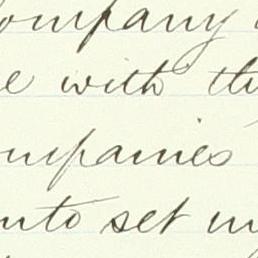 ompany
e with th
ompanies
nto set in